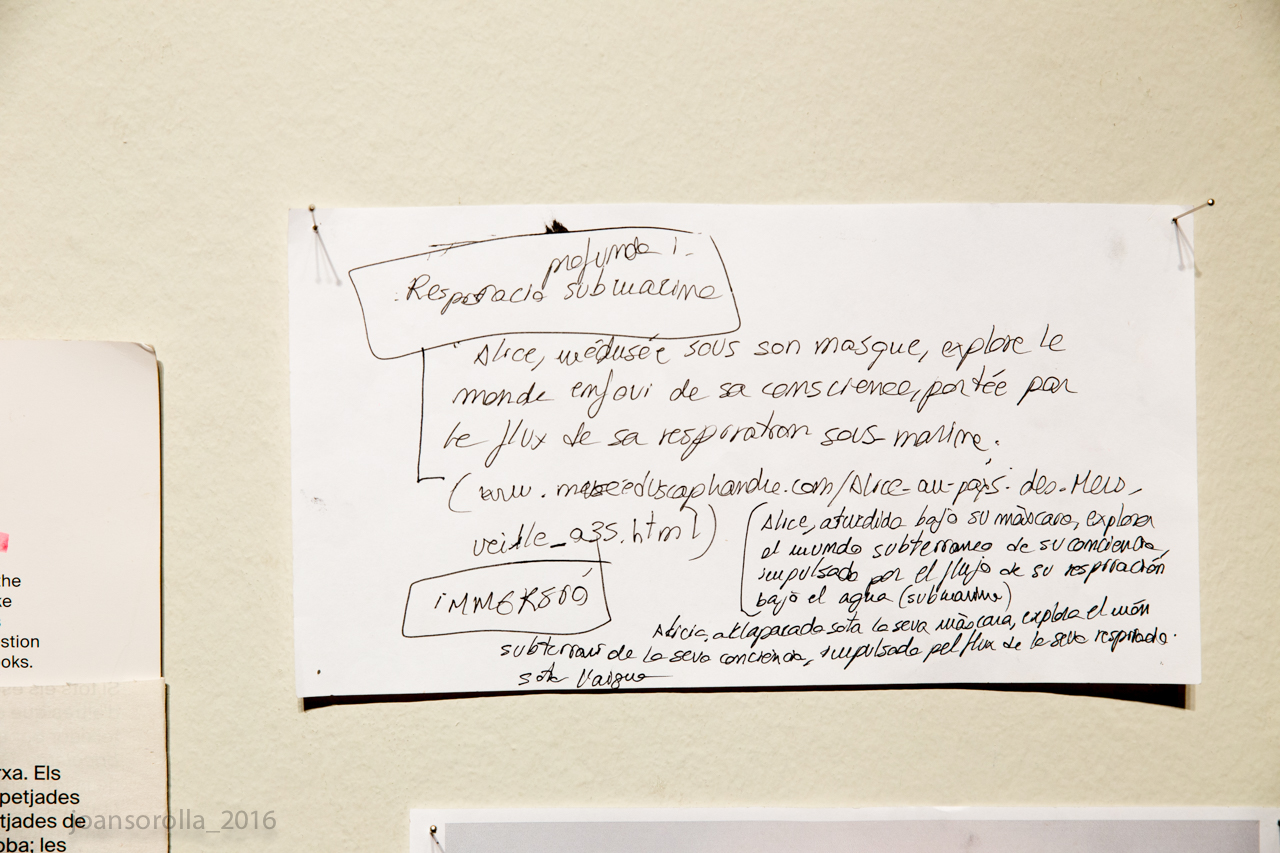 profunda i
Respiració submarina
Alice, médusée sous son masque, explore le
monde enfoui de sa conscience, portée par
le flux de sa respiration sous-marine.
(www.museeduscaphandre.com/Alice-au-pays-des-Mers-
veille_a35.html)
Alice, aturdida bajo su màscara, explora
el mundo subterraneo de su conciencia,
impulsada por el flujo de su respiración
bajo el agua (submarina)
IMMERSIÓ
Alicia, aclaparada sota la seva màscara, explora el món
subterrani de la seva conciencia, impulsada pel flux de la seva respiració
sota l'aigua
the
stion
ooks.
rxa. Els
petjades
tjades de
oba; les
joansorolla_2016